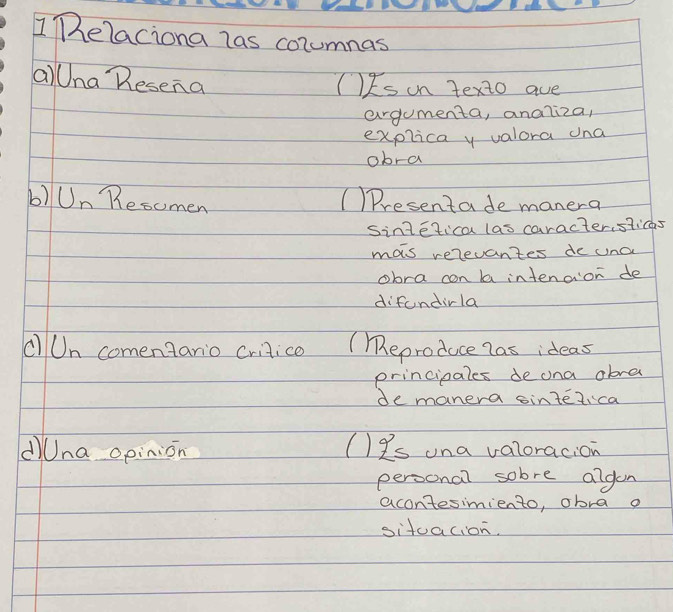 1 Relaciona las columnas
a) Una Reseña
( ) Es un texto que
argumenta, analiza,
explica y valora una
obra
b) Un Resumen
( ) Presenta de manera
sintética las caracteristicas
más relevantes de una
obra con la intención de
difundirla
c) Un comentario critico
( ) Reproduce las ideas
principales de una obra
de manera sintética
d) Una opinión
( ) Es una valoración
personal sobre algun
acontesimiento, obra o
situación.